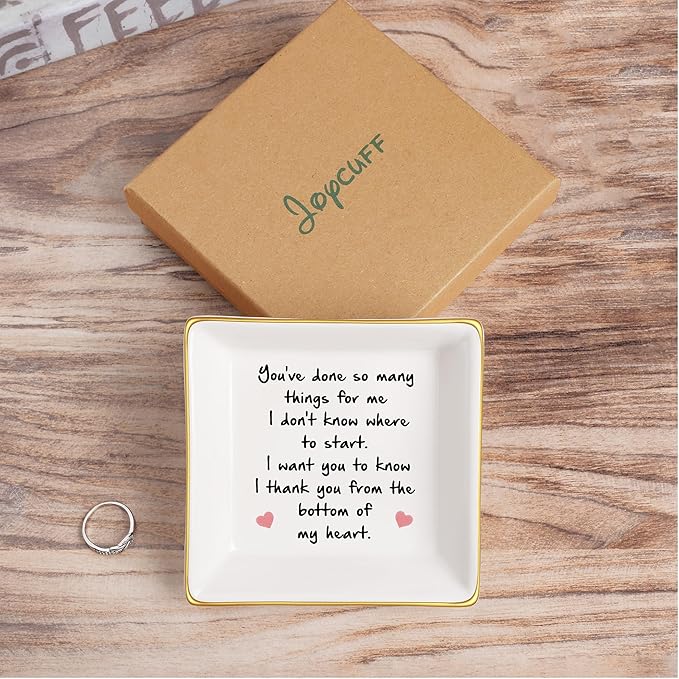 Joycuff
You've done so many
things for me
I don't know where
to start.
I want you to know
I thank you from the
bottom of
my heart.